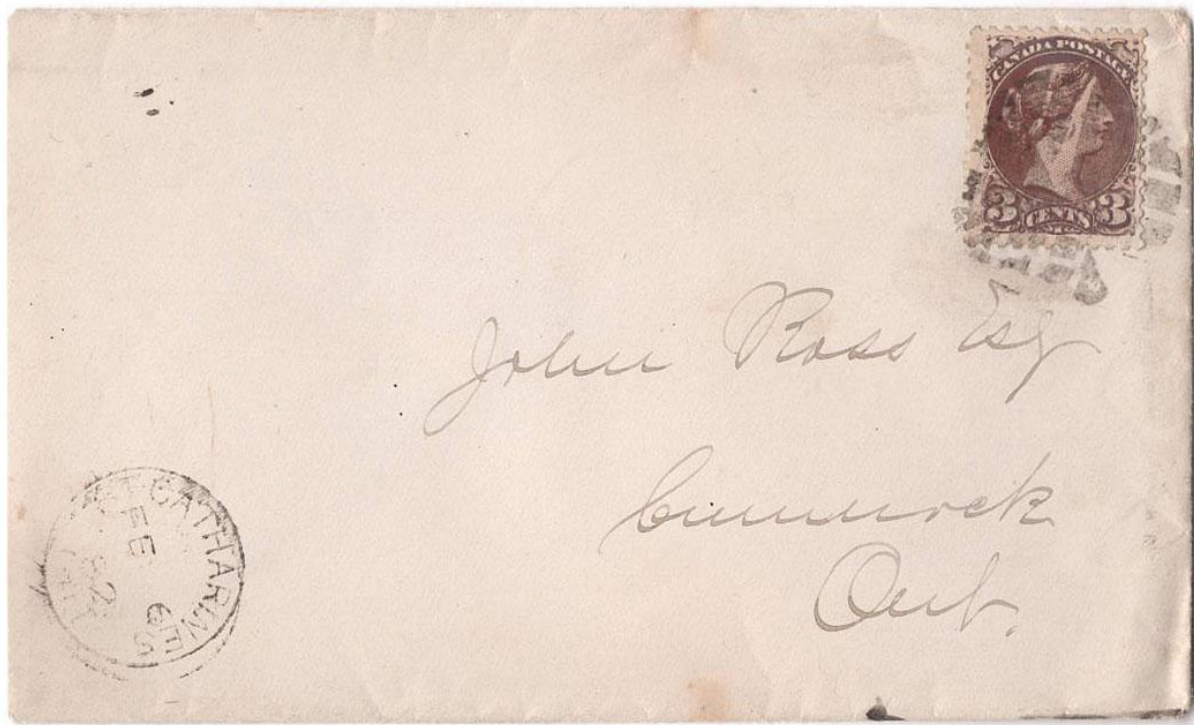 CANADA POSTAGE
3 CENTS 3
John Ross Esq
Cumnock
Ont.
ST CATHARINES
FE 6
82
ONT